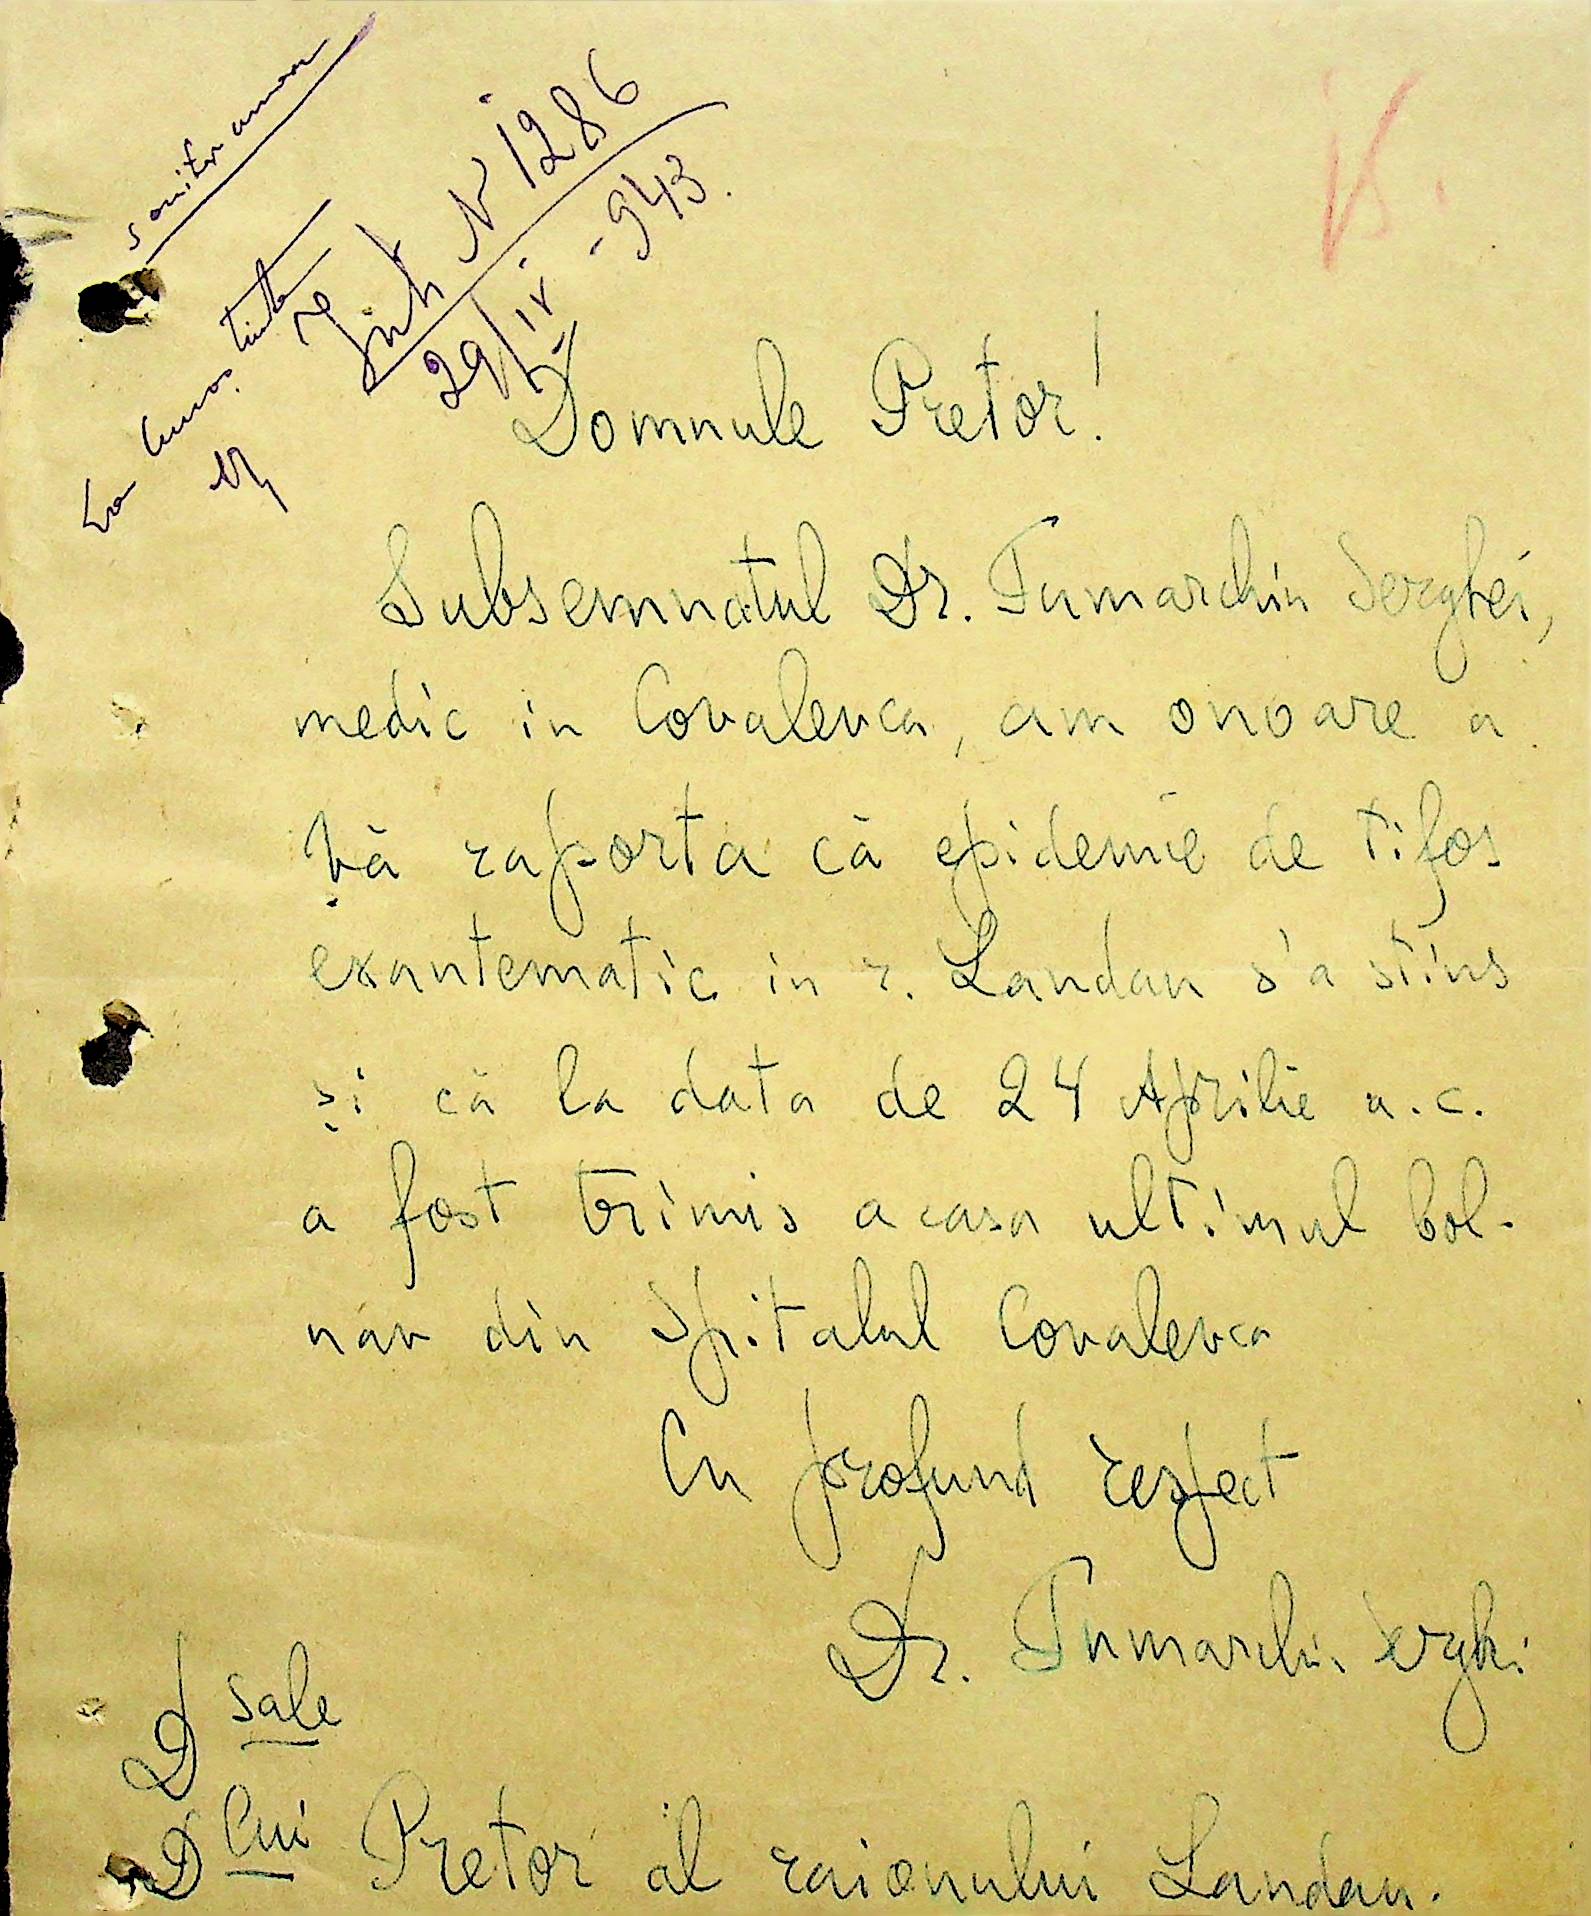 Inr. N 1286
29/IV -943.
Domnule Pretor!
Subsemnatul Dr. Tumarchin Serghei,
medic in Covalevca, am onoare a
Vă raporta că epidemie de tifos
exantematic in r. Landau s'a stins
și că la data de 24 Aprilie a.c.
a fost trimis acasa ultimul bol-
nav din Spitalul Covalevca
Cu profund respect
Dr. Tumarchin Serghei
D sale
D lui Pretor al raionului Landau.